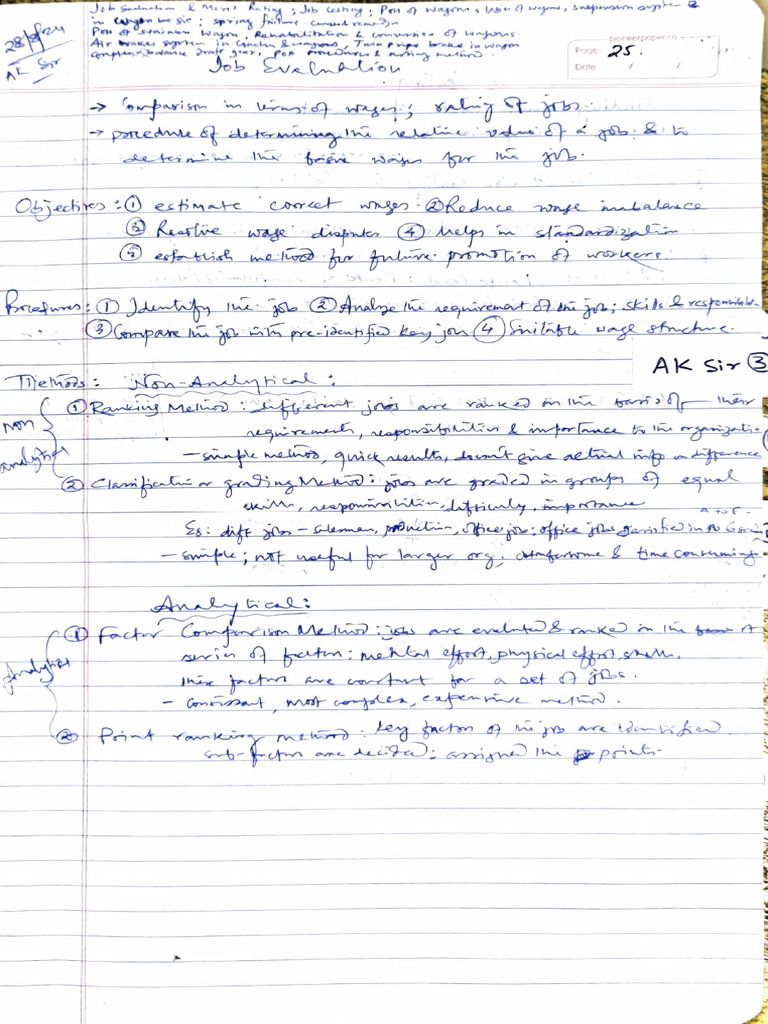 28/8/24
AK Sir
Job Evaluation & Merit Rating ; Job Costing ; POH of Wagons, types of wagons, suspension system
in wagon ; spring failure
POH of wagon, Rehabilitation & conversion of wagons.
Air brake system in & wagons, Twin pipe brake in wagon
draft gear, POH procedure & method
pioneerpaper.co
Page 25.
Date / /
Job Evaluation
→ Comparison in terms of wages ; rating of jobs.
→ procedure of determining the relative value of a job & to
determine the basic wages for the job.
Objectives : ① estimate correct wages ② Reduce wage imbalance
③ Resolve wage disputes ④ helps in standardization
⑤ establish method for future promotion of workers.
Procedures : ① Identify the job ② Analyze the requirement of the job ; skills &
③ Compare the job with pre-identified key job ④ Suitable wage structure.
AK Sir ③
Methods : Non-Analytical :
non analytical
① Ranking Method : different jobs are ranked on the basis of their
requirements, responsibilities & importance to the
- simple method, quick results, doesn't give actual info on difference
② Classification or grading Method : jobs are graded in groups of equal
skills, responsibilities, difficulty, importance
A to F
Eg : diff jobs - salesman, production, office job ; office jobs
- simple ; not useful for larger org, cumbersome & time consuming
Analytical :
Analytical
① Factor Comparison Method : jobs are evaluated & ranked in the
series of factors : mental effort, physical effort, skills,
these factors are constant for a set of jobs.
- consistant, most complex, expensive method.
② Point ranking method : key factors of the job are identified
sub-factors are decided : assigned the points.